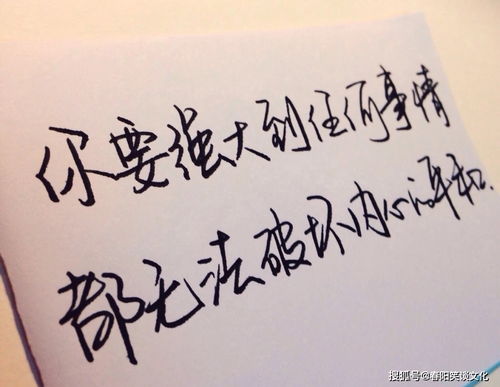 你要强大到任何事情
都无法破坏内心温和.
搜狐号@春阳笑谈文化